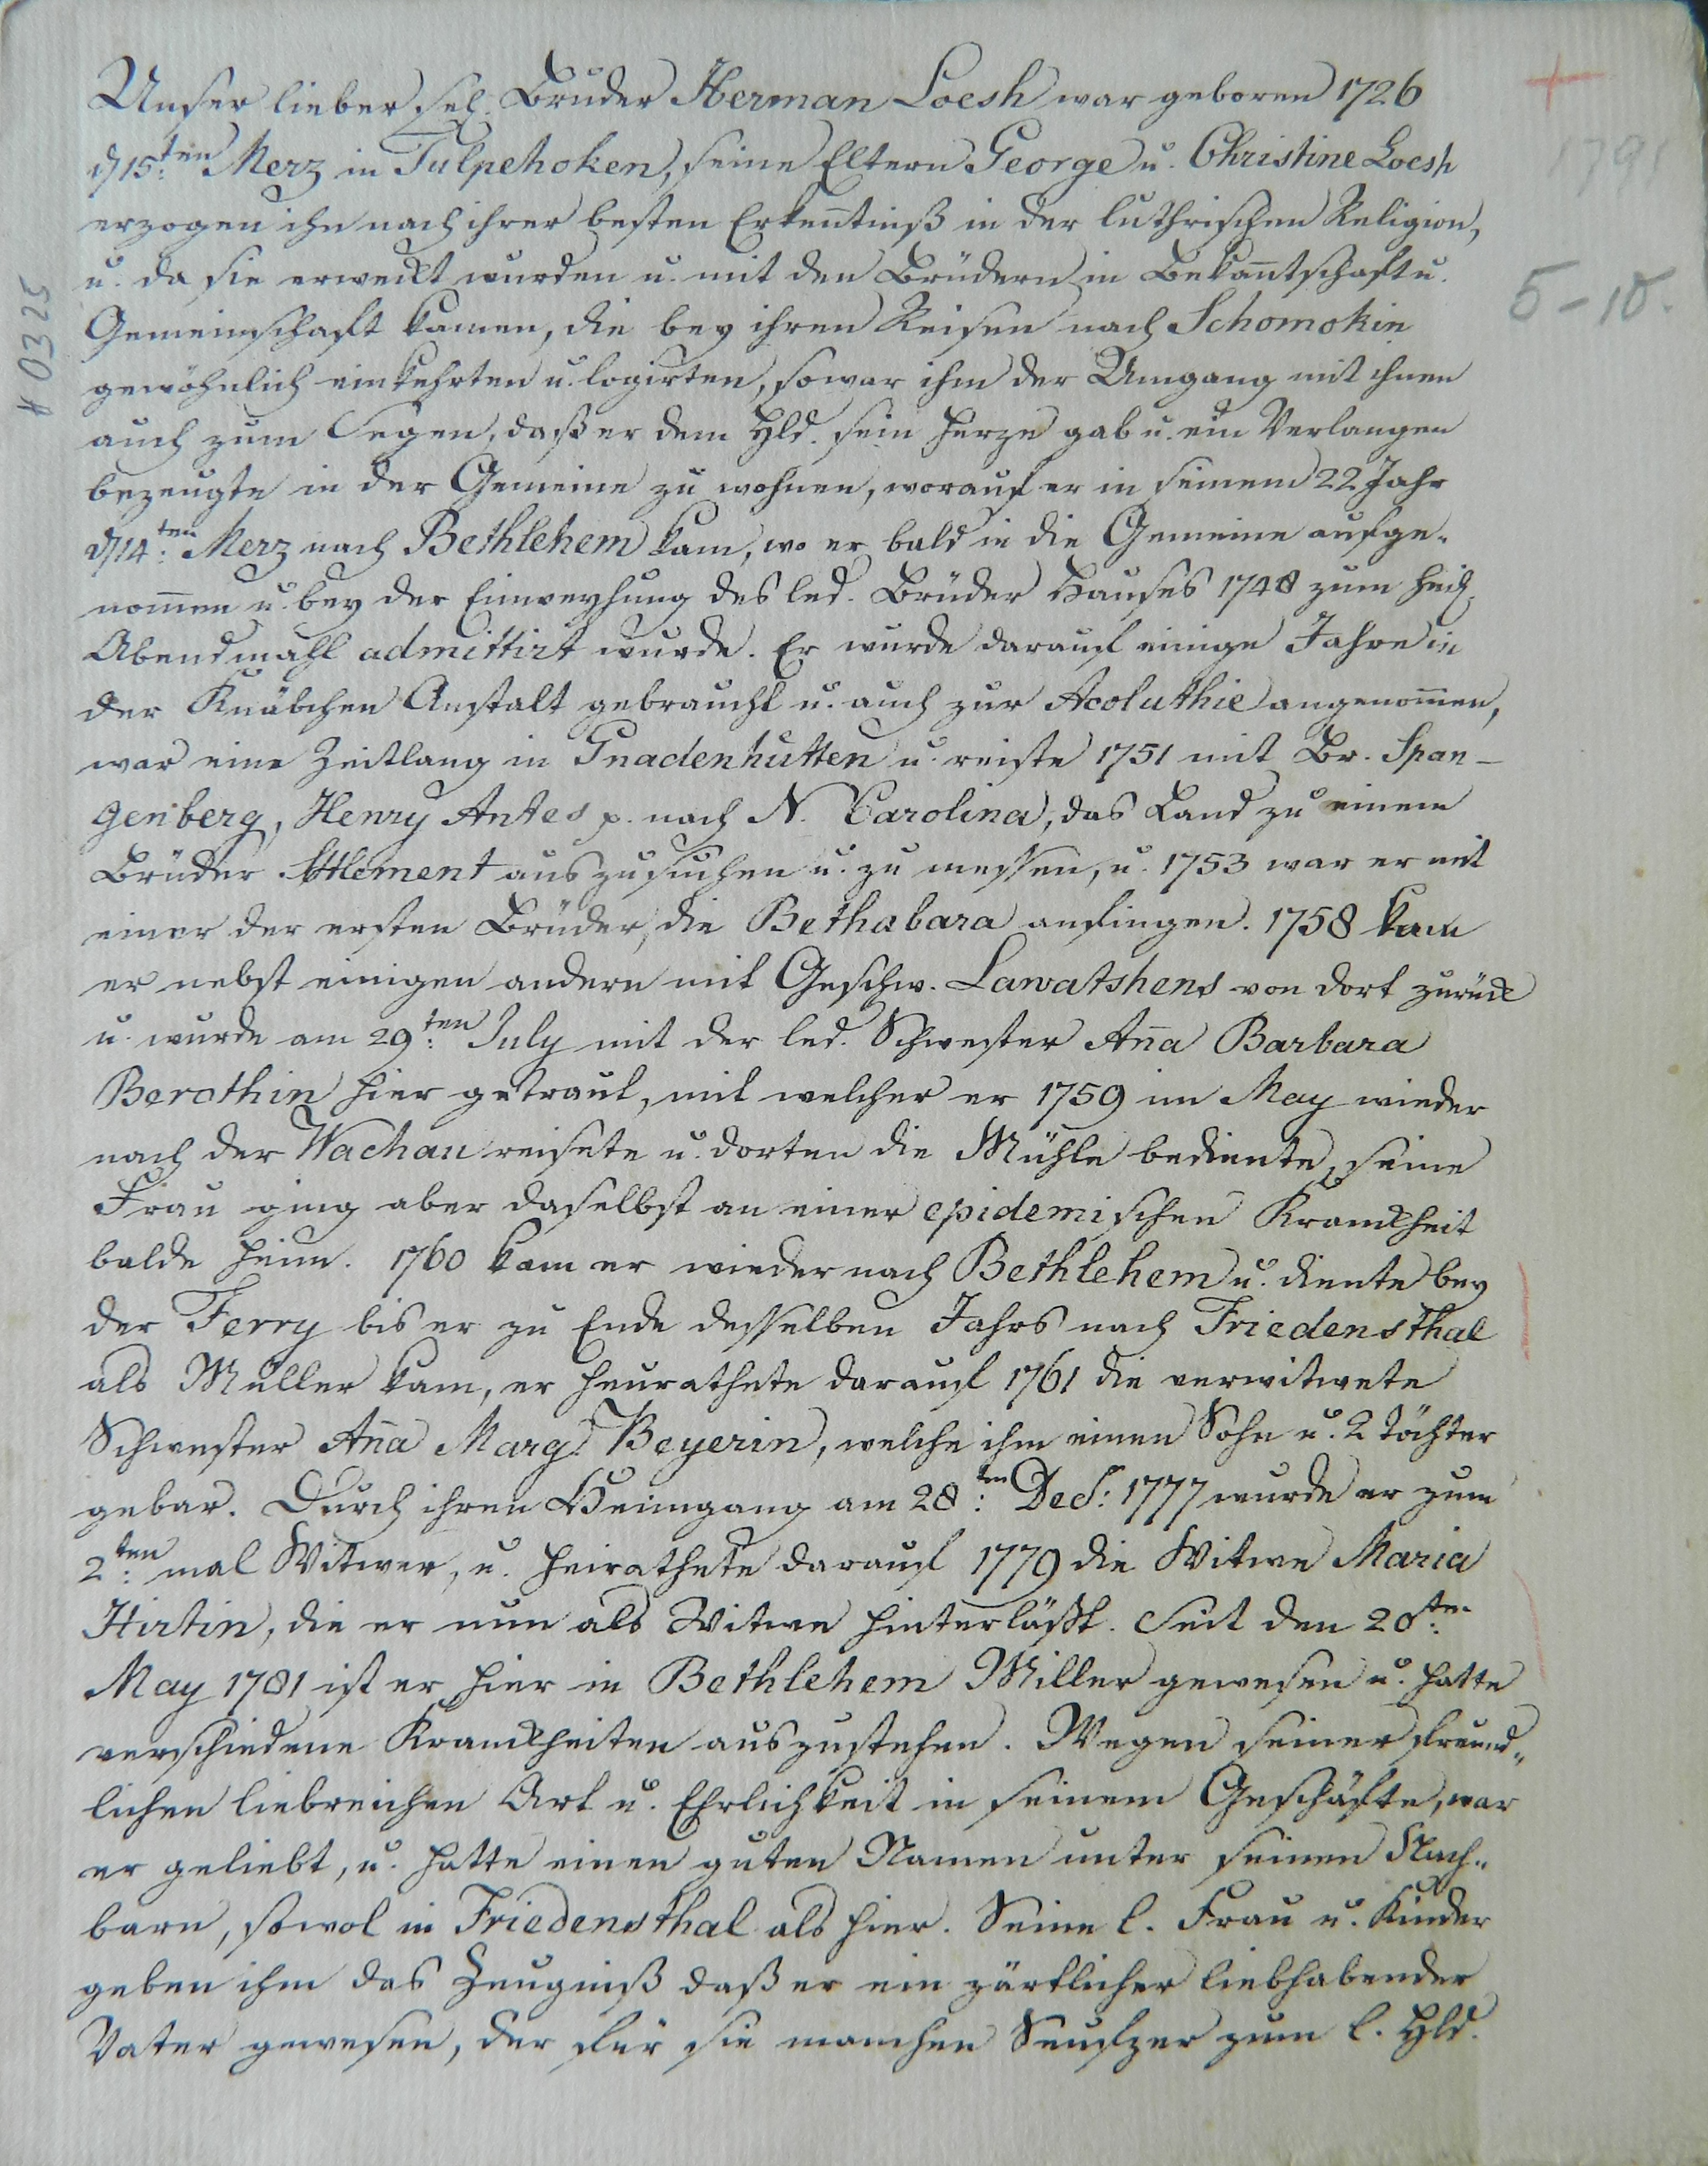 Unser lieber sel. Bruder Herman Loesh war geboren 1726
d 15ten Merz in Tulpehoken, seine Eltern George u. Christine Loesh
erzogen ihn nach ihrer besten Erkentniß in der luthrischen Religion,
u. da sie erweckt wurden u. mit den Brüdern in Bekantschaft u.
Gemeinschaft kamen, die bey ihren Reisen nach Schomokin
gewöhnlich einkehrten u. logirten, so war ihm der Umgang mit ihnen
auch zum Segen, daß er dem Hld. sein Herze gab u. ein Verlangen
bezeugte in der Gemeine zu wohnen, worauf er in seinem 22 Jahr
d 14ten Merz nach Bethlehem kam, wo er bald in die Gemeine aufge-
nomen u. bey der Einweyhung des led. Brüder Hauses 1748 zum heil.
Abendmahl admittirt wurde. Er wurde darauf einige Jahre in
der Knäbchen Anstalt gebraucht u. auch zur Acoluthie angenomen,
war eine Zeitlang in Gnadenhütten u. reiste 1751 mit Br. Span-
genberg, Henry Antes p. nach N. Carolina, das Land zu einem
Brüder Settlement auszusuchen u. zu messen, u. 1753 war er mit
einer der ersten Brüder, die Bethabara anfingen. 1758 kam
er nebst einigen andern mit Geschw. Lawatshens von dort zurück
u. wurde am 29ten July mit der led. Schwester Ana Barbara
Berothin hier getraut, mit welcher er 1759 im May wieder
nach der Wachau reisete u. dorten die Mühle bediente, seine
Frau ging aber daselbst an einer epidemischen Kranckheit
balde heim. 1760 kam er wieder nach Bethlehem u. diente bey
der Ferry bis er zu Ende desselben Jahrs nach Friedensthal
als Müller kam, er heurathete darauf 1761 die verwitwete
Schwester Ana Marg. Beyerin, welche ihm einen Sohn u. 2 Töchter
gebar. Durch ihren Heimgang am 28ten Dec: 1777 wurde er zum
2ten mal Witwer, u. heirathete darauf 1779 die Witwe Maria
Hirtin, die er nun als Witwe hinterläßt. Seit den 28ten
May 1781 ist er hier in Bethlehem Miller gewesen u. hatte
verschiedene Kranckheiten auszustehen. Wegen seiner freund-
lichen liebreichen Art u. Ehrlichkeit in seinem Geschäfte, war
er geliebt, u. hatte einen guten Namen unter seinen Nach-
barn, sowol in Friedensthal als hier. Seine l. Frau u. Kinder
geben ihm das Zeugniß daß er ein zärtlicher liebhabender
Vater gewesen, der für sie manchen Seufzer zum l. Hld.
1791
5-10.
# 0325